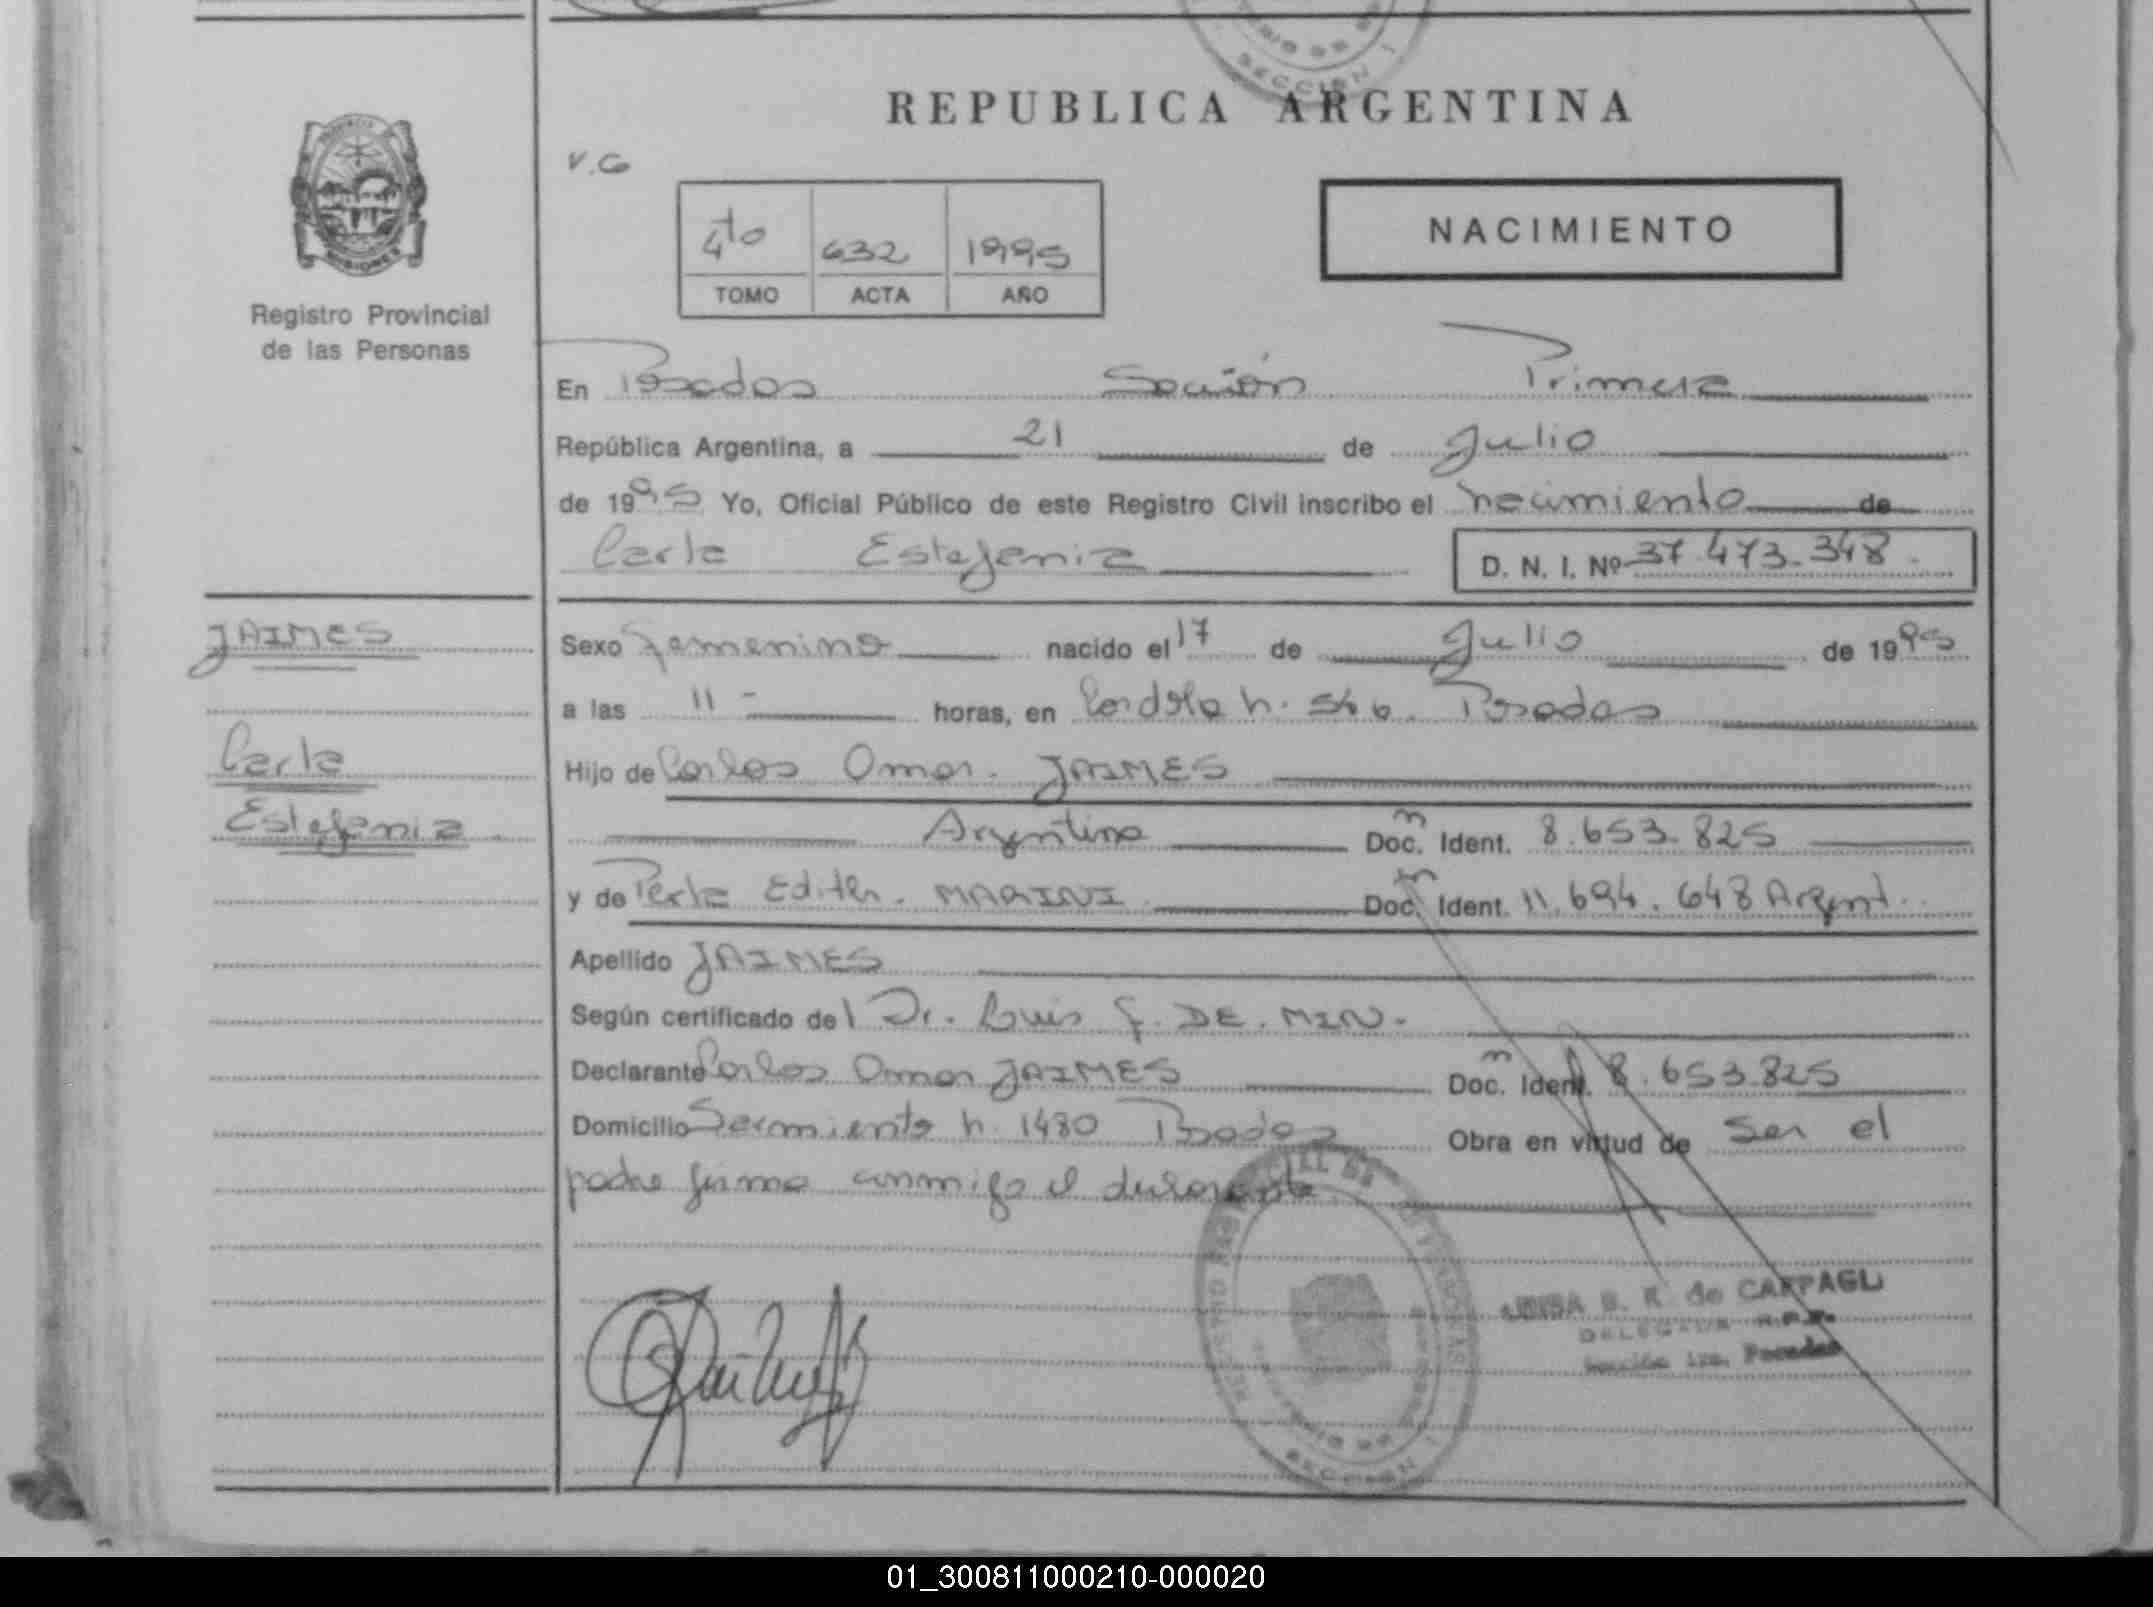 SECCION 1
REPUBLICA ARGENTINA
PROVINCIA
MISIONES
V.G
4to 632 1995
TOMO ACTA AÑO
NACIMIENTO
Registro Provincial
de las Personas
En Posadas Sección Primera
República Argentina, a 21 de Julio
de 1995 Yo, Oficial Público de este Registro Civil inscribo el nacimiento de
Carla Estefania D. N. I. Nº 37.473.348
JAIMES
Sexo femenino nacido el 17 de Julio de 1995
a las 11 - horas, en Cordoba n. 546. Posadas
Carla
Hijo de Carlos Omar. JAIMES
Estefania
Argentino Doc. Ident. 8.653.825
y de Perla Edith. MARINI Doc. Ident. 11.694.648 Argent.
Apellido JAIMES
Según certificado del Dr. Luis F. DE. MIN.
Declarante Carlos Omar JAIMES Doc. Ident. 8.653.825
Domicilio Sarmiento n. 1480 Posadas Obra en virtud de Ser el
padre firma conmigo el declarante
B. R. de CARPAGLI
DELEGADA R.P.P.
Sección 1ra. Posadas
SECCION 1
01_300811000210-000020